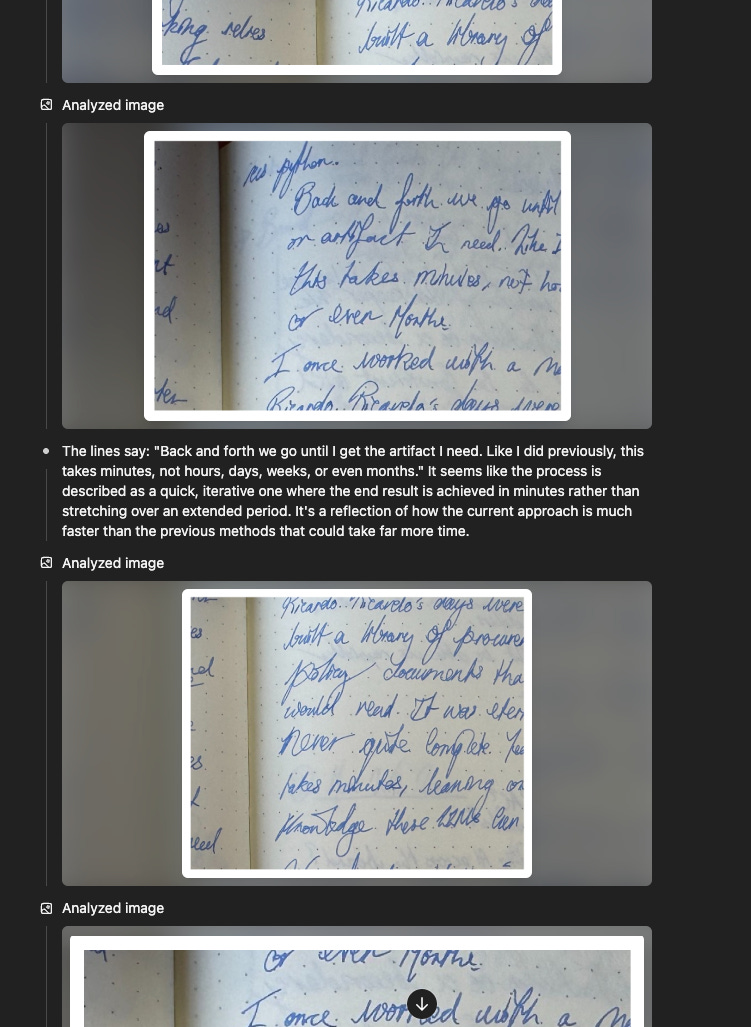 king relies
Ricardo. Ricardo's
built a library of
Analyzed image
python.
Back and forth we go until
an artifact I need. Like I
this takes minutes, not
or even Months.
I once worked with a
Ricardo. Ricardo's days were
The lines say: "Back and forth we go until I get the artifact I need. Like I did previously, this
takes minutes, not hours, days, weeks, or even months." It seems like the process is
described as a quick, iterative one where the end result is achieved in minutes rather than
stretching over an extended period. It's a reflection of how the current approach is much
faster than the previous methods that could take far more time.
Analyzed image
Ricardo. Ricardo's days were
built a library of
policy documents
would read. It was
Never quite complete.
takes minutes, leaning on
knowledge these LLMs can
Analyzed image
or even Months.
I once worked with a